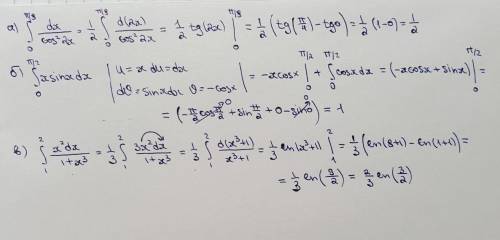 а) ∫₀^{π/8} dx/cos²2x = 1/2 ∫₀^{π/8} d(2x)/cos²2x = 1/2 tg(2x) |₀^{π/8} = 1/2 (tg(π/4) - tg0) = 1/2 (1-0) = 1/2
б) ∫₀^{π/2} x sinx dx | u = x du = dx dϑ = sinx dx ϑ = -cosx | = -x cosx |₀^{π/2} + ∫₀^{π/2} cosx dx = (-x cosx + sinx) |₀^{π/2} =
= (-π/2 cos π/2 + sin π/2 + 0 - sin0) = -1
в) ∫₁² x²dx/1+x³ = 1/3 ∫₁² 3x²dx/1+x³ = 1/3 ∫₁² d(x³+1)/x³+1 = 1/3 ln(x³+1) |₁² = 1/3 (ln(8+1) - ln(1+1)) =
= 1/3 ln(9/2) = 2/3 ln(3/2)